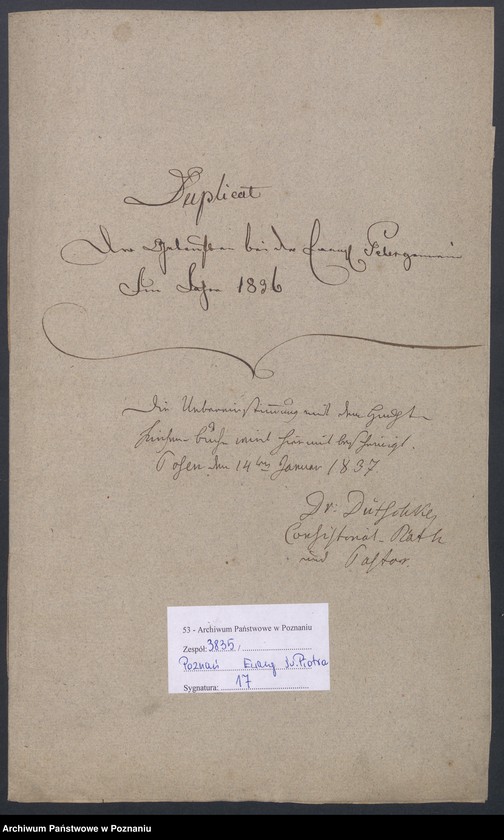 Duplicat
Der Getauften bei der Evang Petrigemein
Im Jahre 1836
Die Uebereinstimmung mit dem Haupt-
Kirchen buche wird hiermit bescheinigt.
Posen den 14ten Januar 1837.
Dr: Dütschke,
Consistorial-Rath
und Pastor.
53 - Archiwum Państwowe w Poznaniu
Zespół: 3835,
Poznań Ewang Św. Piotra
Sygnatura: 17
Archiwum Państwowe w Poznaniu